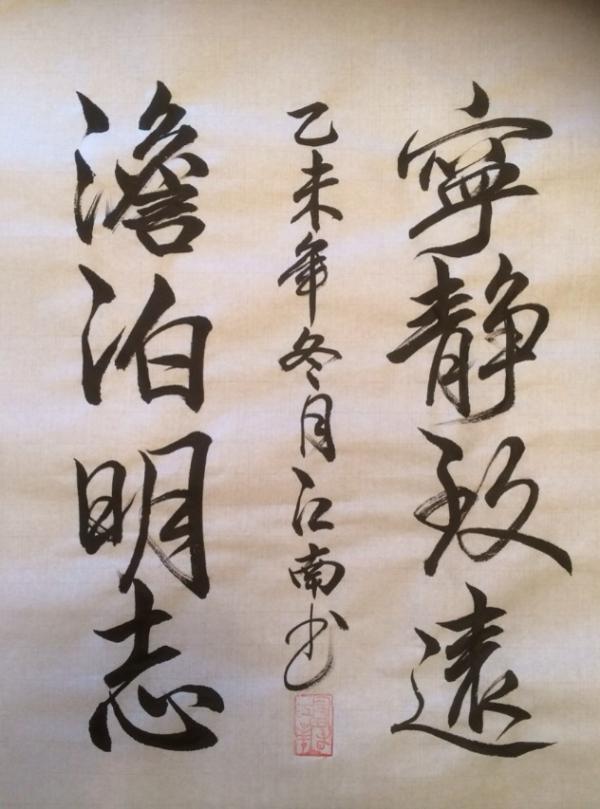 寧静致遠
乙未年冬月江南书
澹泊明志